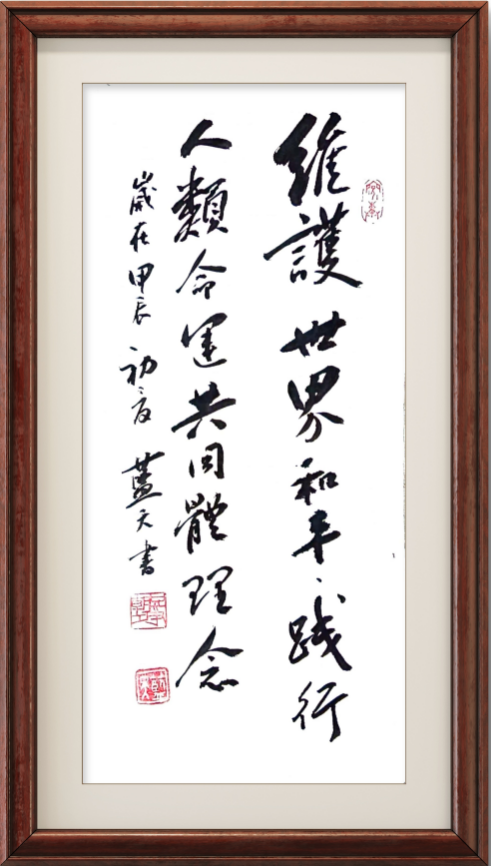 維護世界和平·践行
人類命運共同體理念
歲在甲辰初夏藍天書